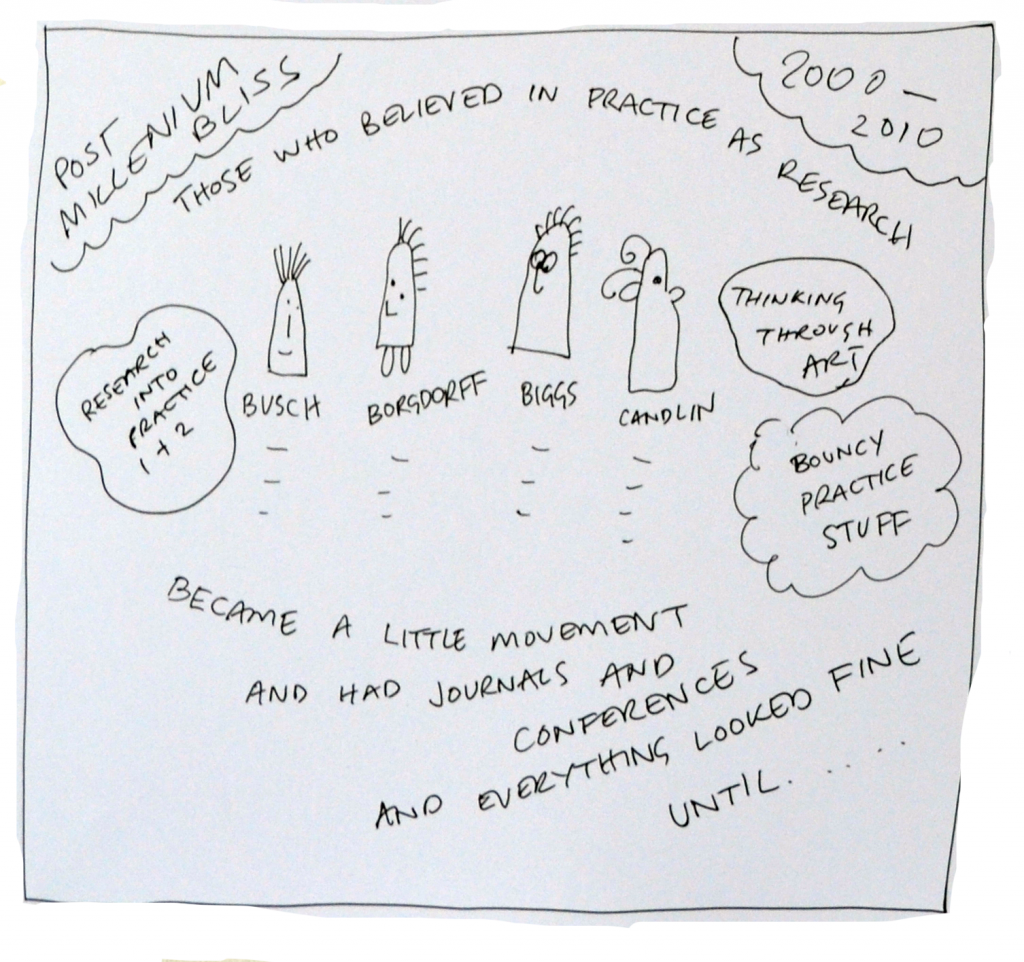 POST
MILLENIUM
BLISS
2000 —
2010
THOSE WHO BELIEVED IN PRACTICE AS RESEARCH
RESEARCH
INTO
PRACTICE
1 + 2
BUSCH
BORGDORFF
BIGGS
CANDLIN
THINKING
THROUGH
ART
BOUNCY
PRACTICE
STUFF
BECAME A LITTLE MOVEMENT
AND HAD JOURNALS AND
CONFERENCES
AND EVERYTHING LOOKED FINE
UNTIL. . . . . . .